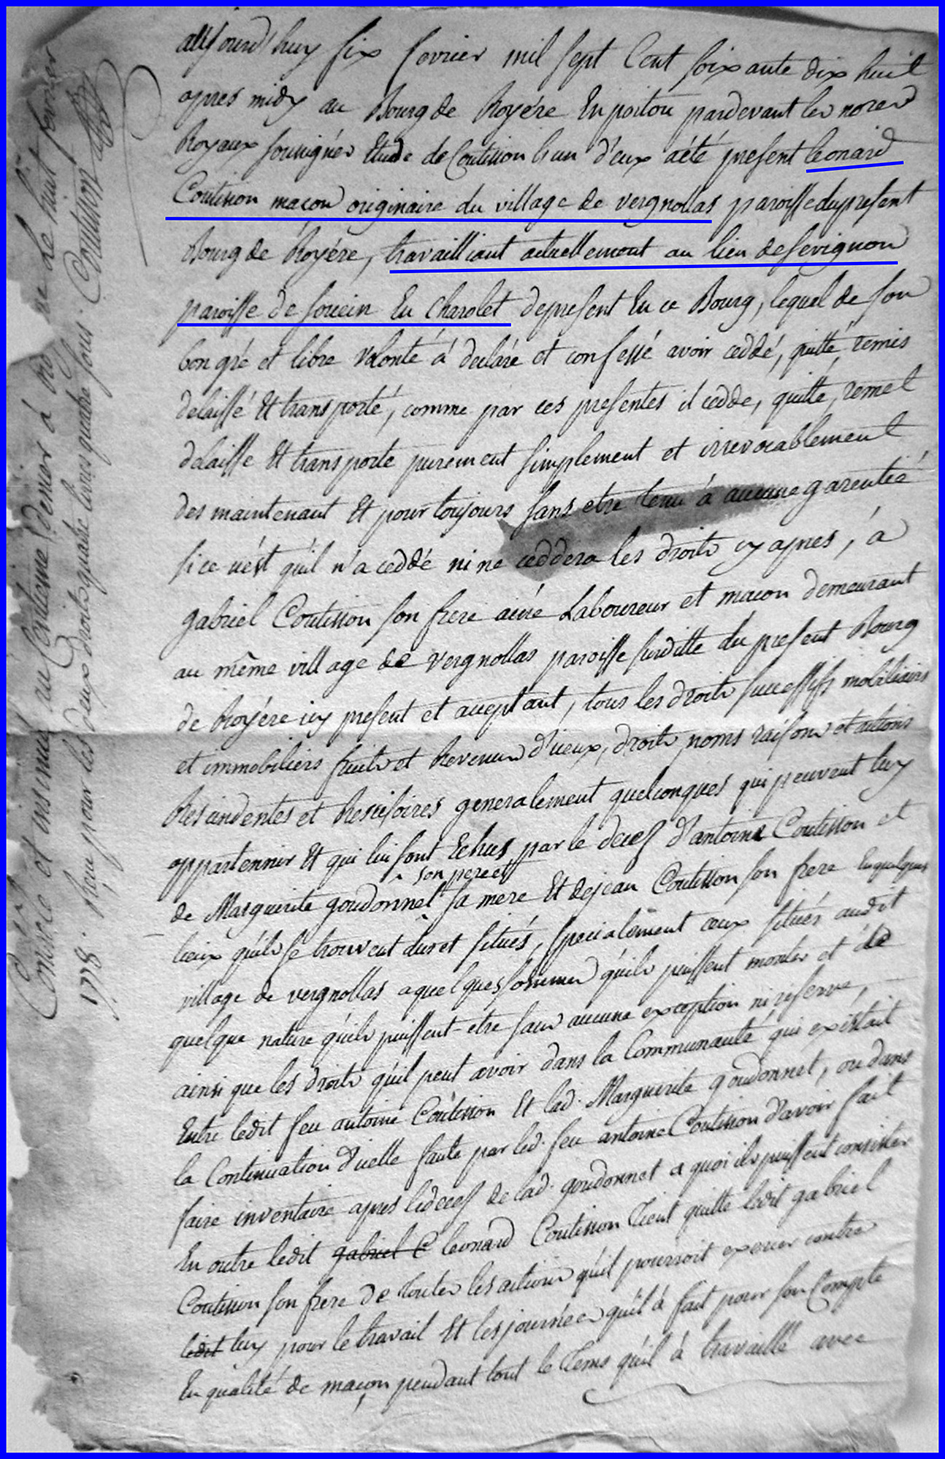 aujourd'huy six fevrier mil sept Cent soixante dix huit
apres midy au Bourg de Royére En poitou pardevant les nores
Royaux soussignés Etude de Coutisson l'un d'eux a été present Leonard
Coutisson macon originaire du village de vergnollas paroisse du present
Bourg de Royére, travailliant actuellement au lieu de sevignon
paroisse de sivein En Charolet de present En ce Bourg, lequel de son
bon gré et libre volonté à declaré et confessé avoir ceddé, quitté, remis
delaissé Et transporté, comme par ces presentes il cedde, quitte, remet
delaisse Et transporte purement simplement et irrevocablement
des maintenant Et pour toujours sans etre tenu à aucune garentie
si ce n'est qu'il n'a ceddé ni ne ceddera les droits cy apres, à
gabriel Coutisson son frere ainé Laboureur et macon demeurant
au même village de vergnollas paroisse susditte du present Bourg
de Royére icy present et acceptant, tous les droits successifs mobiliairs
et immobiliers fruits et Revenus d'iceux, droits noms raisons et actions
Resindentes et Resisoires generalement quelconques qui peuvent luy
appartennir Et qui lui sont Echus par le decés d'antoine Coutisson et
son pere et
de Marguerite goudonnet sa mere Et de jean Coutisson son frere En quelques
lieux qu'ils se trouvent dus et situés, specialement ceux situés audit
village de vergnollas a quelques sommes qu'ils puissent monter et de
quelque nature qu'ils puissent etre sans aucune exception ni reserve,
ainsi que les droits qu'il peut avoir dans la Communauté qui existait
Entre ledit feu antoine Coutisson Et lad. Marguerite goudonnet, ou dans
la Continuation d'icelle faute par led. feu antoine Coutisson d'avoir fait
faire inventaire apres le decés de lad. goudonnet a quoi ils puissent consister
En outre ledit gabriel C leonard Coutisson Tient quitte ledit gabriel
Coutisson son frere de toutes les actions qu'il pourroit exercer contre
ledit luy pour le travail Et les journées qu'il à fait pour son Compte
En qualité de maçon pendant tout le Tems qu'il à travaillé avec
Controlé et insinué au Centieme Denier à Ro ne le huit fevrier
1778 Reçu pour les deux droits quatre livres quatre sous. Coutisson